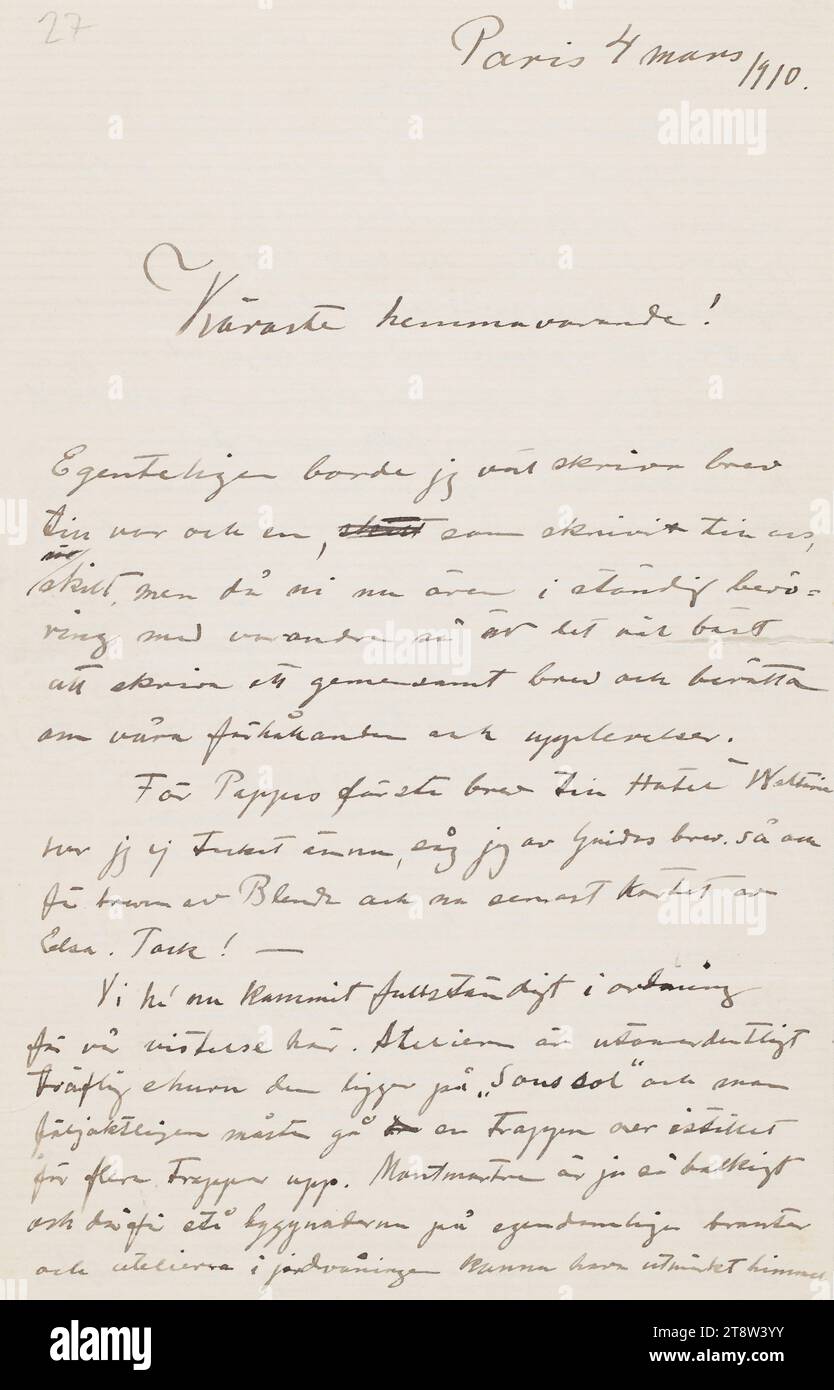 27
Paris 4 mars 1910.
Käraste hemmavarande!
Egentligen borde jag väl skriva brev
till var och en, som skrivit till oss,
skilt, men då ni nu ären i ständig berö=
ring med varandra så är det väl bäst
att skriva ett gemensamt brev och berätta
om våra förhållanden och upplevelser.
För Pappas första brev till Hotel
har jag ej tackat ännu, såg jag av Guidos brev. Så och
för breven av Blenda och nu senast kortet av
Elsa. Tack! —
Vi ha nu kommit fullständigt i ordning
för vår vistelse här. Atelieren är utomordentligt
träflig ehuru den ligger på „Soussol" och man
följaktligen måste gå en trappa ner istället
för flera trappor upp. Montmartre är ju så backigt
och därför stå byggnaderna på egendomliga branter
och atelierna i jordvåningen kunna hava utmärkt himmel
alamy
Image ID: 2T8W3YY
www.alamy.com